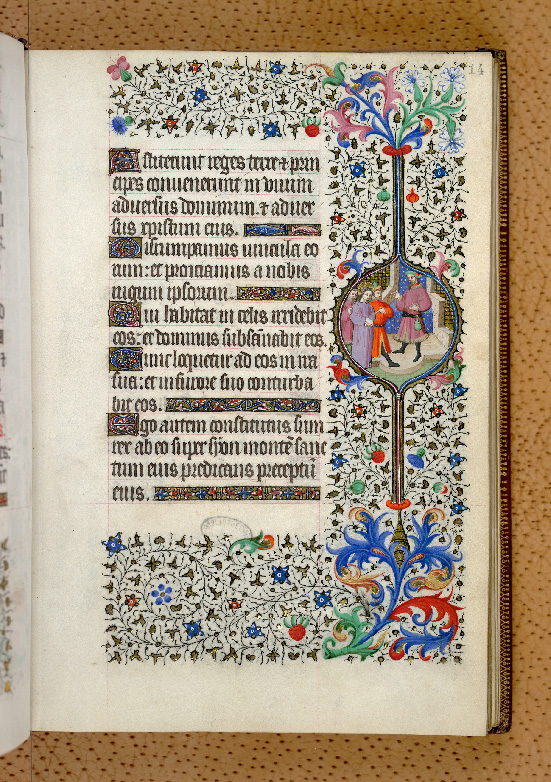 14
Astiterunt reges terre et prin
cipes convenerunt in unum
adversus dominum et adver
sus xpistum eius.
Disrumpamus vincula eo
rum: et proiciamus a nobis
iugum ipsorum.
Qui habitat in celis irridebit
eos: et dominus subsannabit eos.
Tunc loquetur ad eos in ira
sua: et in furore suo conturba
bit eos.
Ego autem constitutus sum
rex ab eo super syon montē sanc
tum eius predicans preceptū
eius.